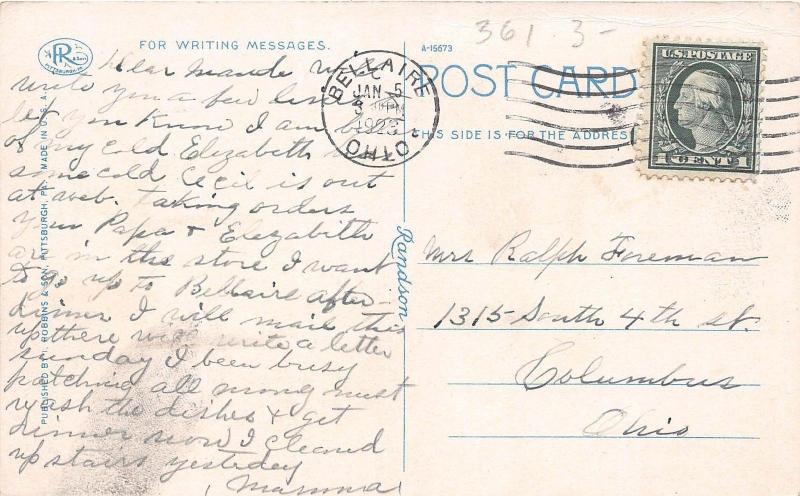 FOR WRITING MESSAGES.
A-15673
361 3-
PR
PITTSBURGH, PA.
POST CARD
THIS SIDE IS FOR THE ADDRESS
BELLAIRE
JAN 5
1923
OHIO
U.S. POSTAGE
1 CENT 1
Dear Maude
write you a few line
let you Know I am
of my cold Elizabeth
some cold Cecil is out
at web. taking orders
Your Papa & Elezabith
are in the store I want
to go up to Bellaire after-
dinner I will mail this
up there will write a letter
sunday I been busy
patching all morng must
wash the dishes & get
dinner now I cleaned
up stairs yesterdey
Mamma
Randson
Mrs Ralph Foreman
1315 South 4th st.
Columbus
Ohio
PUBLISHED BY I. ROBBINS & SON, PITTSBURGH, PA. MADE IN U.S.A.